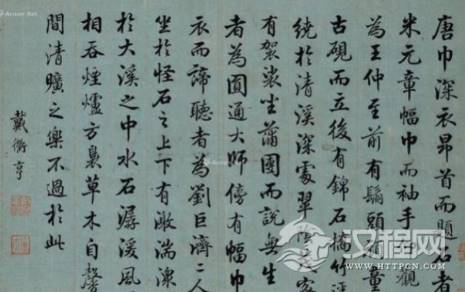 唐巾深衣昂首而題石者
米元章幅巾而袖手仰觀
為王仲至前有鬅頭頑童
古硯而立後有錦石橋竹逕
繞於清溪深處翠陰
有袈裟坐蒲團而說無生
者為圓通大師傍有幅巾
衣而諦聽者為劉巨濟二人
坐於怪石之上下有激湍潀
於大溪之中水石潺湲風
相吞煙爐方裊草木自馨
間清曠之樂不過於此
戴衢亨
汉程网
HTTPCN.COM